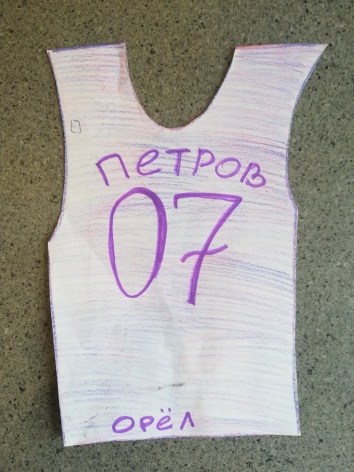 ПЕТРОВ
07
ОРЁЛ